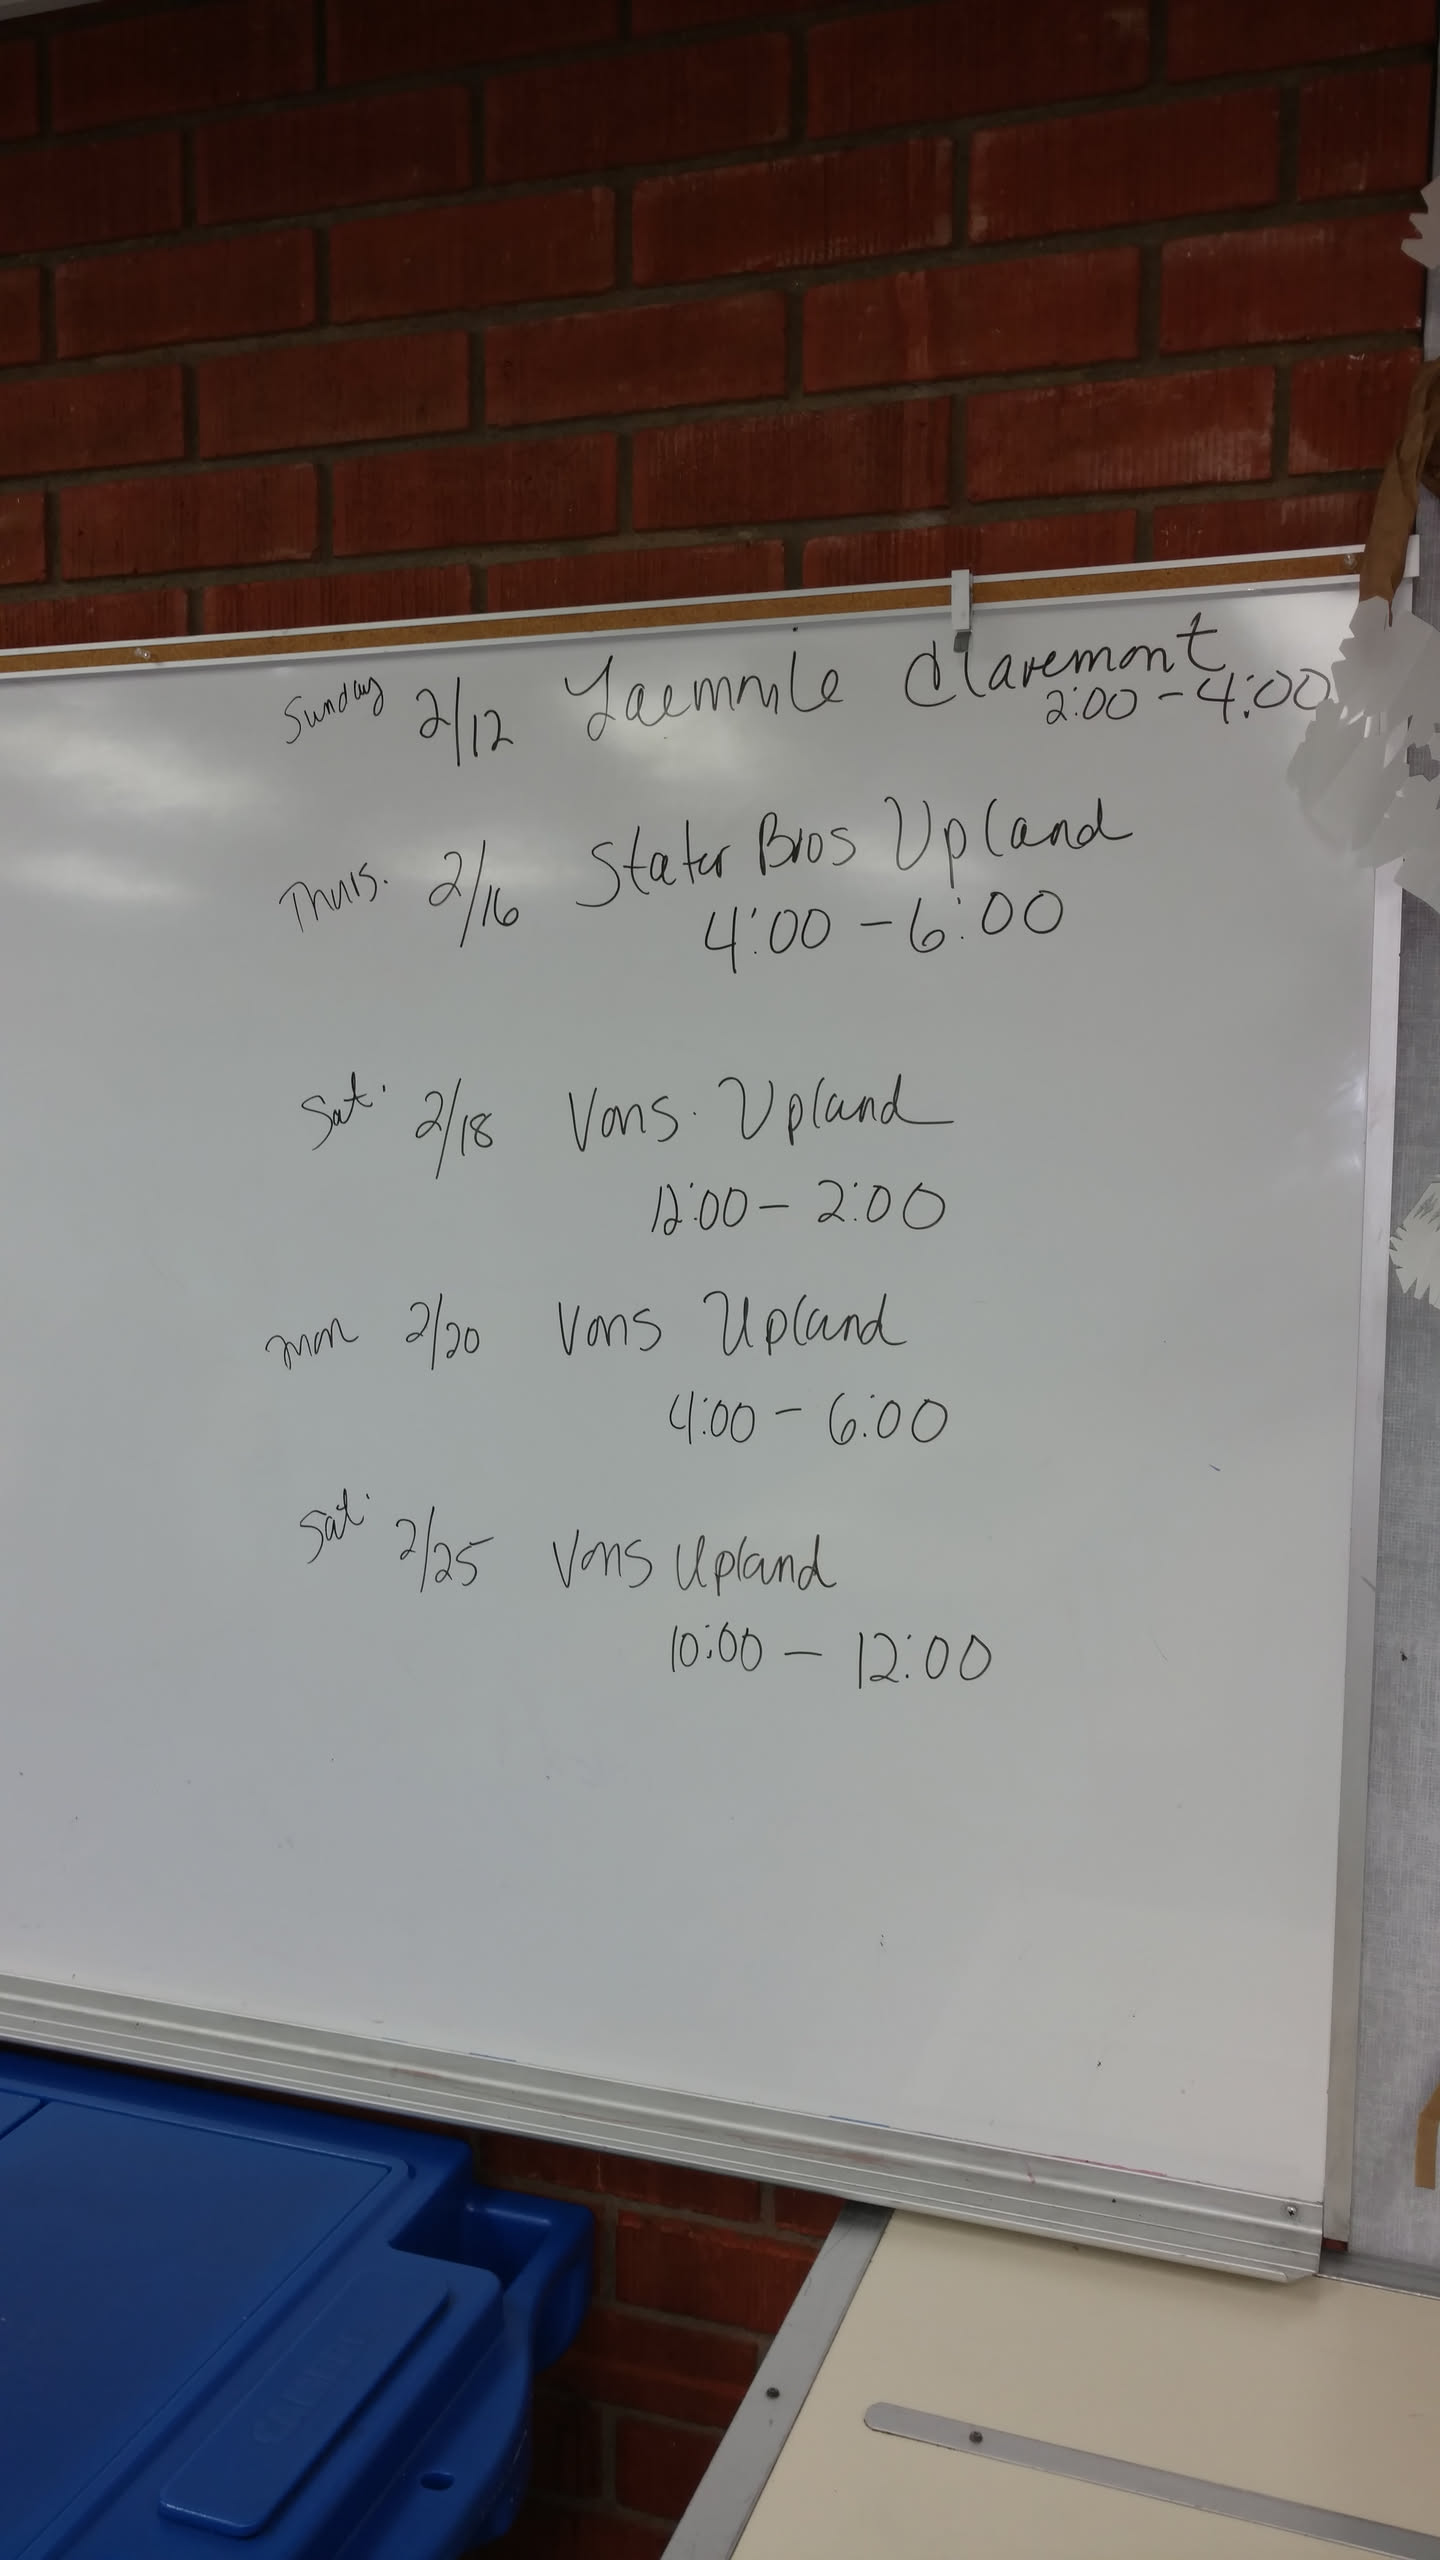 Sunday 2/12 Laemmle Claremont
2:00 - 4:00
Thurs. 2/16 Stater Bros Upland
4:00 - 6:00
Sat. 2/18 Vons Upland
12:00 - 2:00
Mon 2/20 Vons Upland
4:00 - 6:00
Sat. 2/25 Vons Upland
10:00 - 12:00